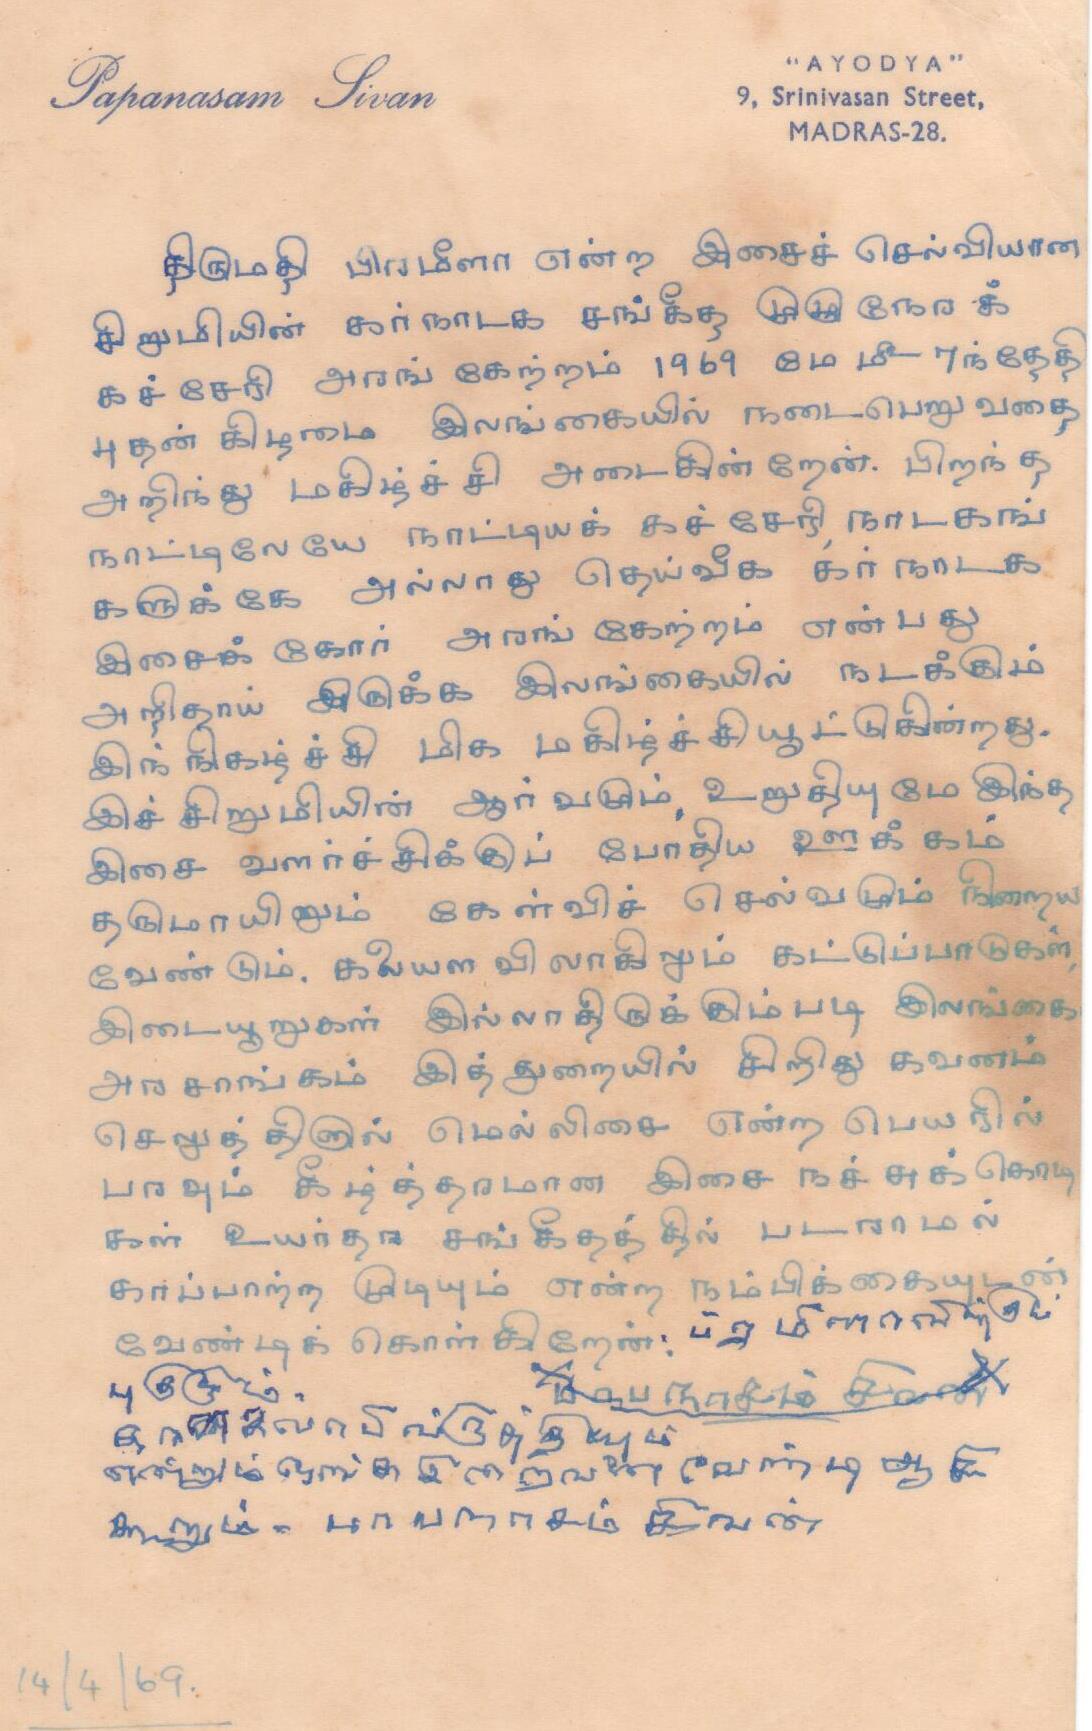 Papanasam Sivan
"AYODYA"
9, Srinivasan Street,
MADRAS-28.
திருமதி பிரமீளா என்ற இசைச் செல்வியான
சிறுமியின் கர்நாடக சங்கீத முழுநேரக்
கச்சேரி அரங்கேற்றம் 1969 மே மீ 7ந்தேதி
புதன்கிழமை இலங்கையில் நடைபெறுவதை
அறிந்து மகிழ்ச்சி அடைகின்றேன். பிறந்த
நாட்டிலேயே நாட்டியக் கச்சேரி, நாடகங்
களுக்கே அல்லாது தெய்வீக கர்நாடக
இசைக்கோர் அரங்கேற்றம் என்பது
அறிதாய் இருக்க இலங்கையில் நடக்கும்
இந்நிகழ்ச்சி மிக மகிழ்ச்சியூட்டுகின்றது.
இச்சிறுமியின் ஆர்வமும், உறுதியுமே இந்த
இசை வளர்ச்சிக்குப் போதிய ஊக்கம்
தருமாயினும் கேள்விச் செல்வமும் நிறைய
வேண்டும். கலையளவிலாகிலும் கட்டுப்பாடுகள்,
இடையூறுகள் இல்லாதிருக்கும்படி இலங்கை
அரசாங்கம் இத்துறையில் சிறிது கவனம்
செலுத்தினால் மெல்லிசை என்ற பெயரில்
பரவும் கீழ்த்தரமான இசை நச்சுக்கொடி
கள் உயர்தர சங்கீதத்தில் படராமல்
காப்பாற்ற முடியும் என்ற நம்பிக்கையுடன்
வேண்டிக்கொள்கிறேன்: பிரமீளாவிற்கும்
புகழும்,
என்றும் இறைவனை வேண்டி ஆசி
கூறும். பாபநாசம் சிவன்
14/4/69.